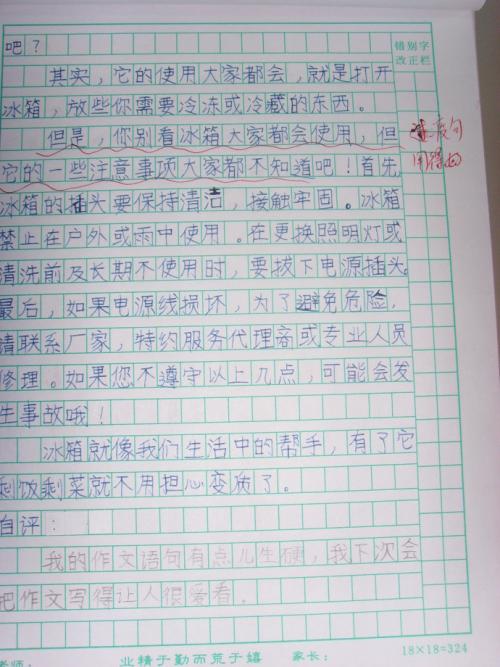 吧？
错别字
改正栏
其实，它的使用大家都会，就是打开
冰箱，放些你需要冷冻或冷藏的东西。
但是，你别看冰箱大家都会使用，但
它的一些注意事项大家都不知道吧！首先，
冰箱的插头要保持清洁，接触牢固。冰箱
禁止在户外或雨中使用。在更换照明灯或
清洗前及长期不使用时，要拔下电源插头。
最后，如果电源线损坏，为了避免危险，
请联系厂家，特约服务代理商或专业人员
修理。如果您不遵守以上几点，可能会发
生事故哦！
冰箱就像我们生活中的帮手，有了它
剩饭剩菜就不用担心变质了。
自评：
我的作文语句有点儿生硬，我下次会
把作文写得让人很爱看。
老师： 业精于勤而荒于嬉 家长： 18×18=324